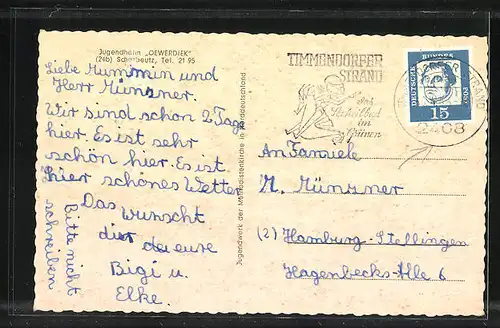 Jugendheim „OEWERDIEK"
(24b) Scharbeutz, Tel. 21 95
Liebe Mummin und
Herr Münzner.
Wir sind schon 2 Tage
hier. Es ist sehr
schön hier. Es ist
hier schönes Wetter
Das wünscht
dir deine
Bigi u.
Elke.
Bitte nicht
schreiben
Jugendwerk der Methodistenkirche in Norddeutschland
TIMMENDORFER
STRAND
das
Seebad
im
Grünen
DEUTSCHE
BUNDES
POST
15
STRAND
2408
An Familie
M. Münzner
(2) Hamburg-Stellingen
Hagenbecks-Alle 6